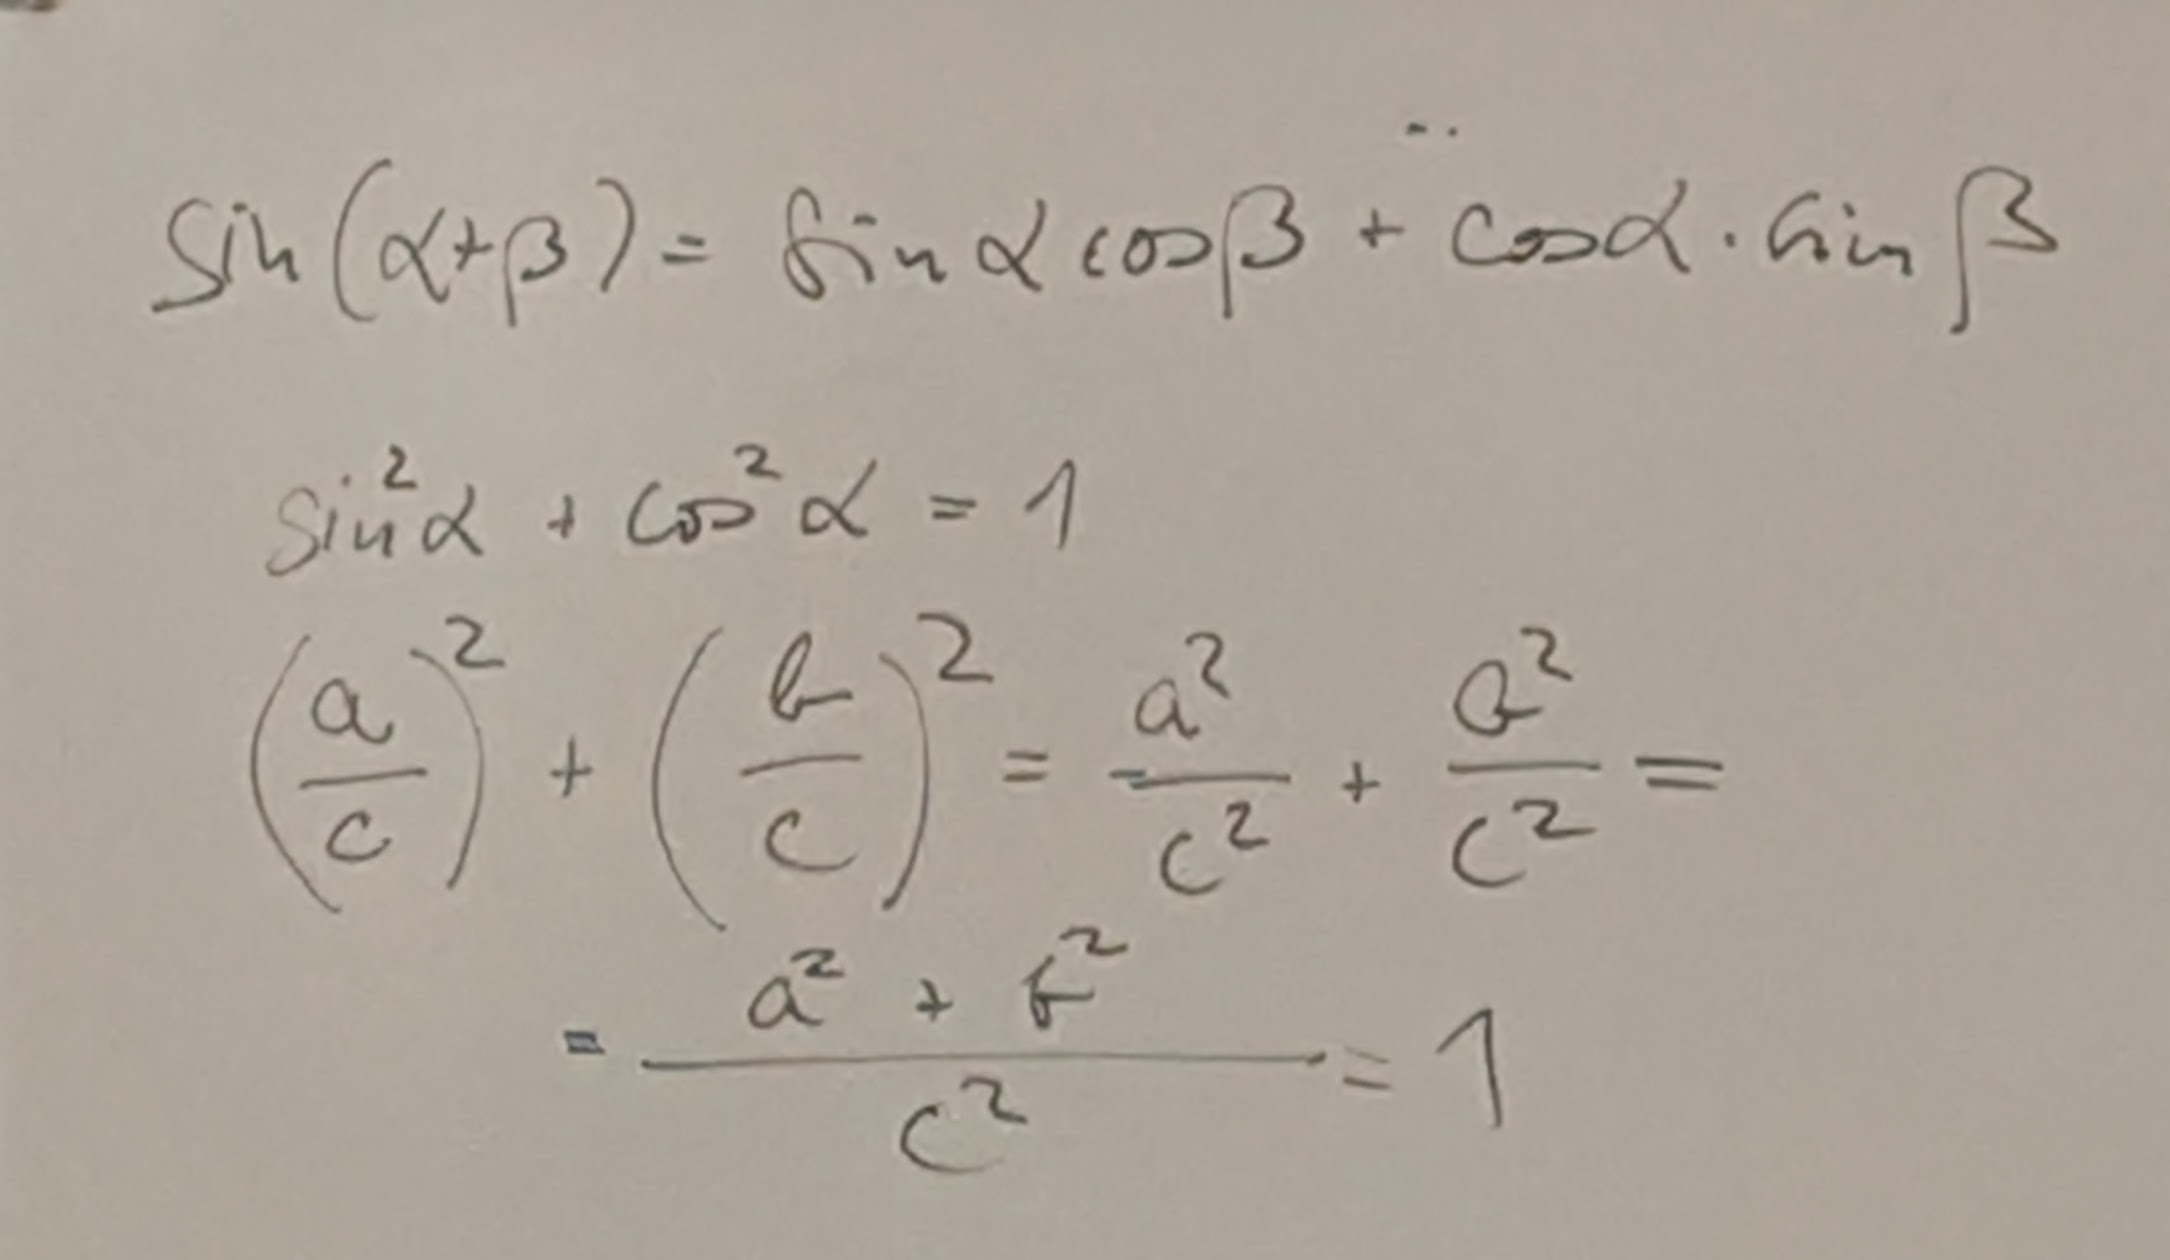 sin(α+β) = sin α cos β + cos α · sin β
sin²α + cos²α = 1
(a/c)² + (b/c)² = a²/c² + b²/c² =
= (a² + b²)/c² = 1